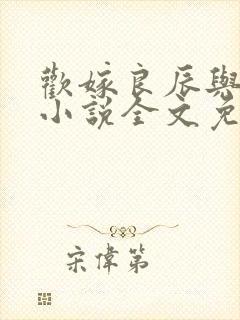 歡嫁良辰與
小說全文免
宋偉第